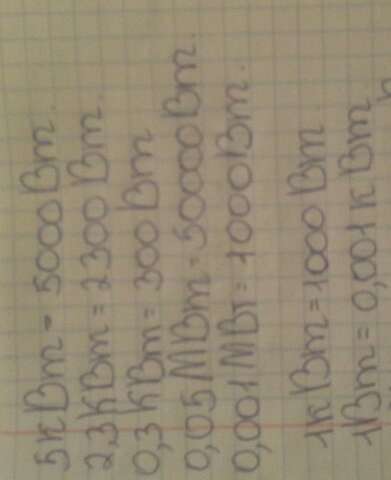 5кВт = 5000Вт.
2,3кВт = 2300Вт.
0,3кВт = 300Вт
0,05МВт = 50000Вт.
0,001МВт = 1000Вт.
1кВт = 1000Вт
1Вт = 0,001кВт